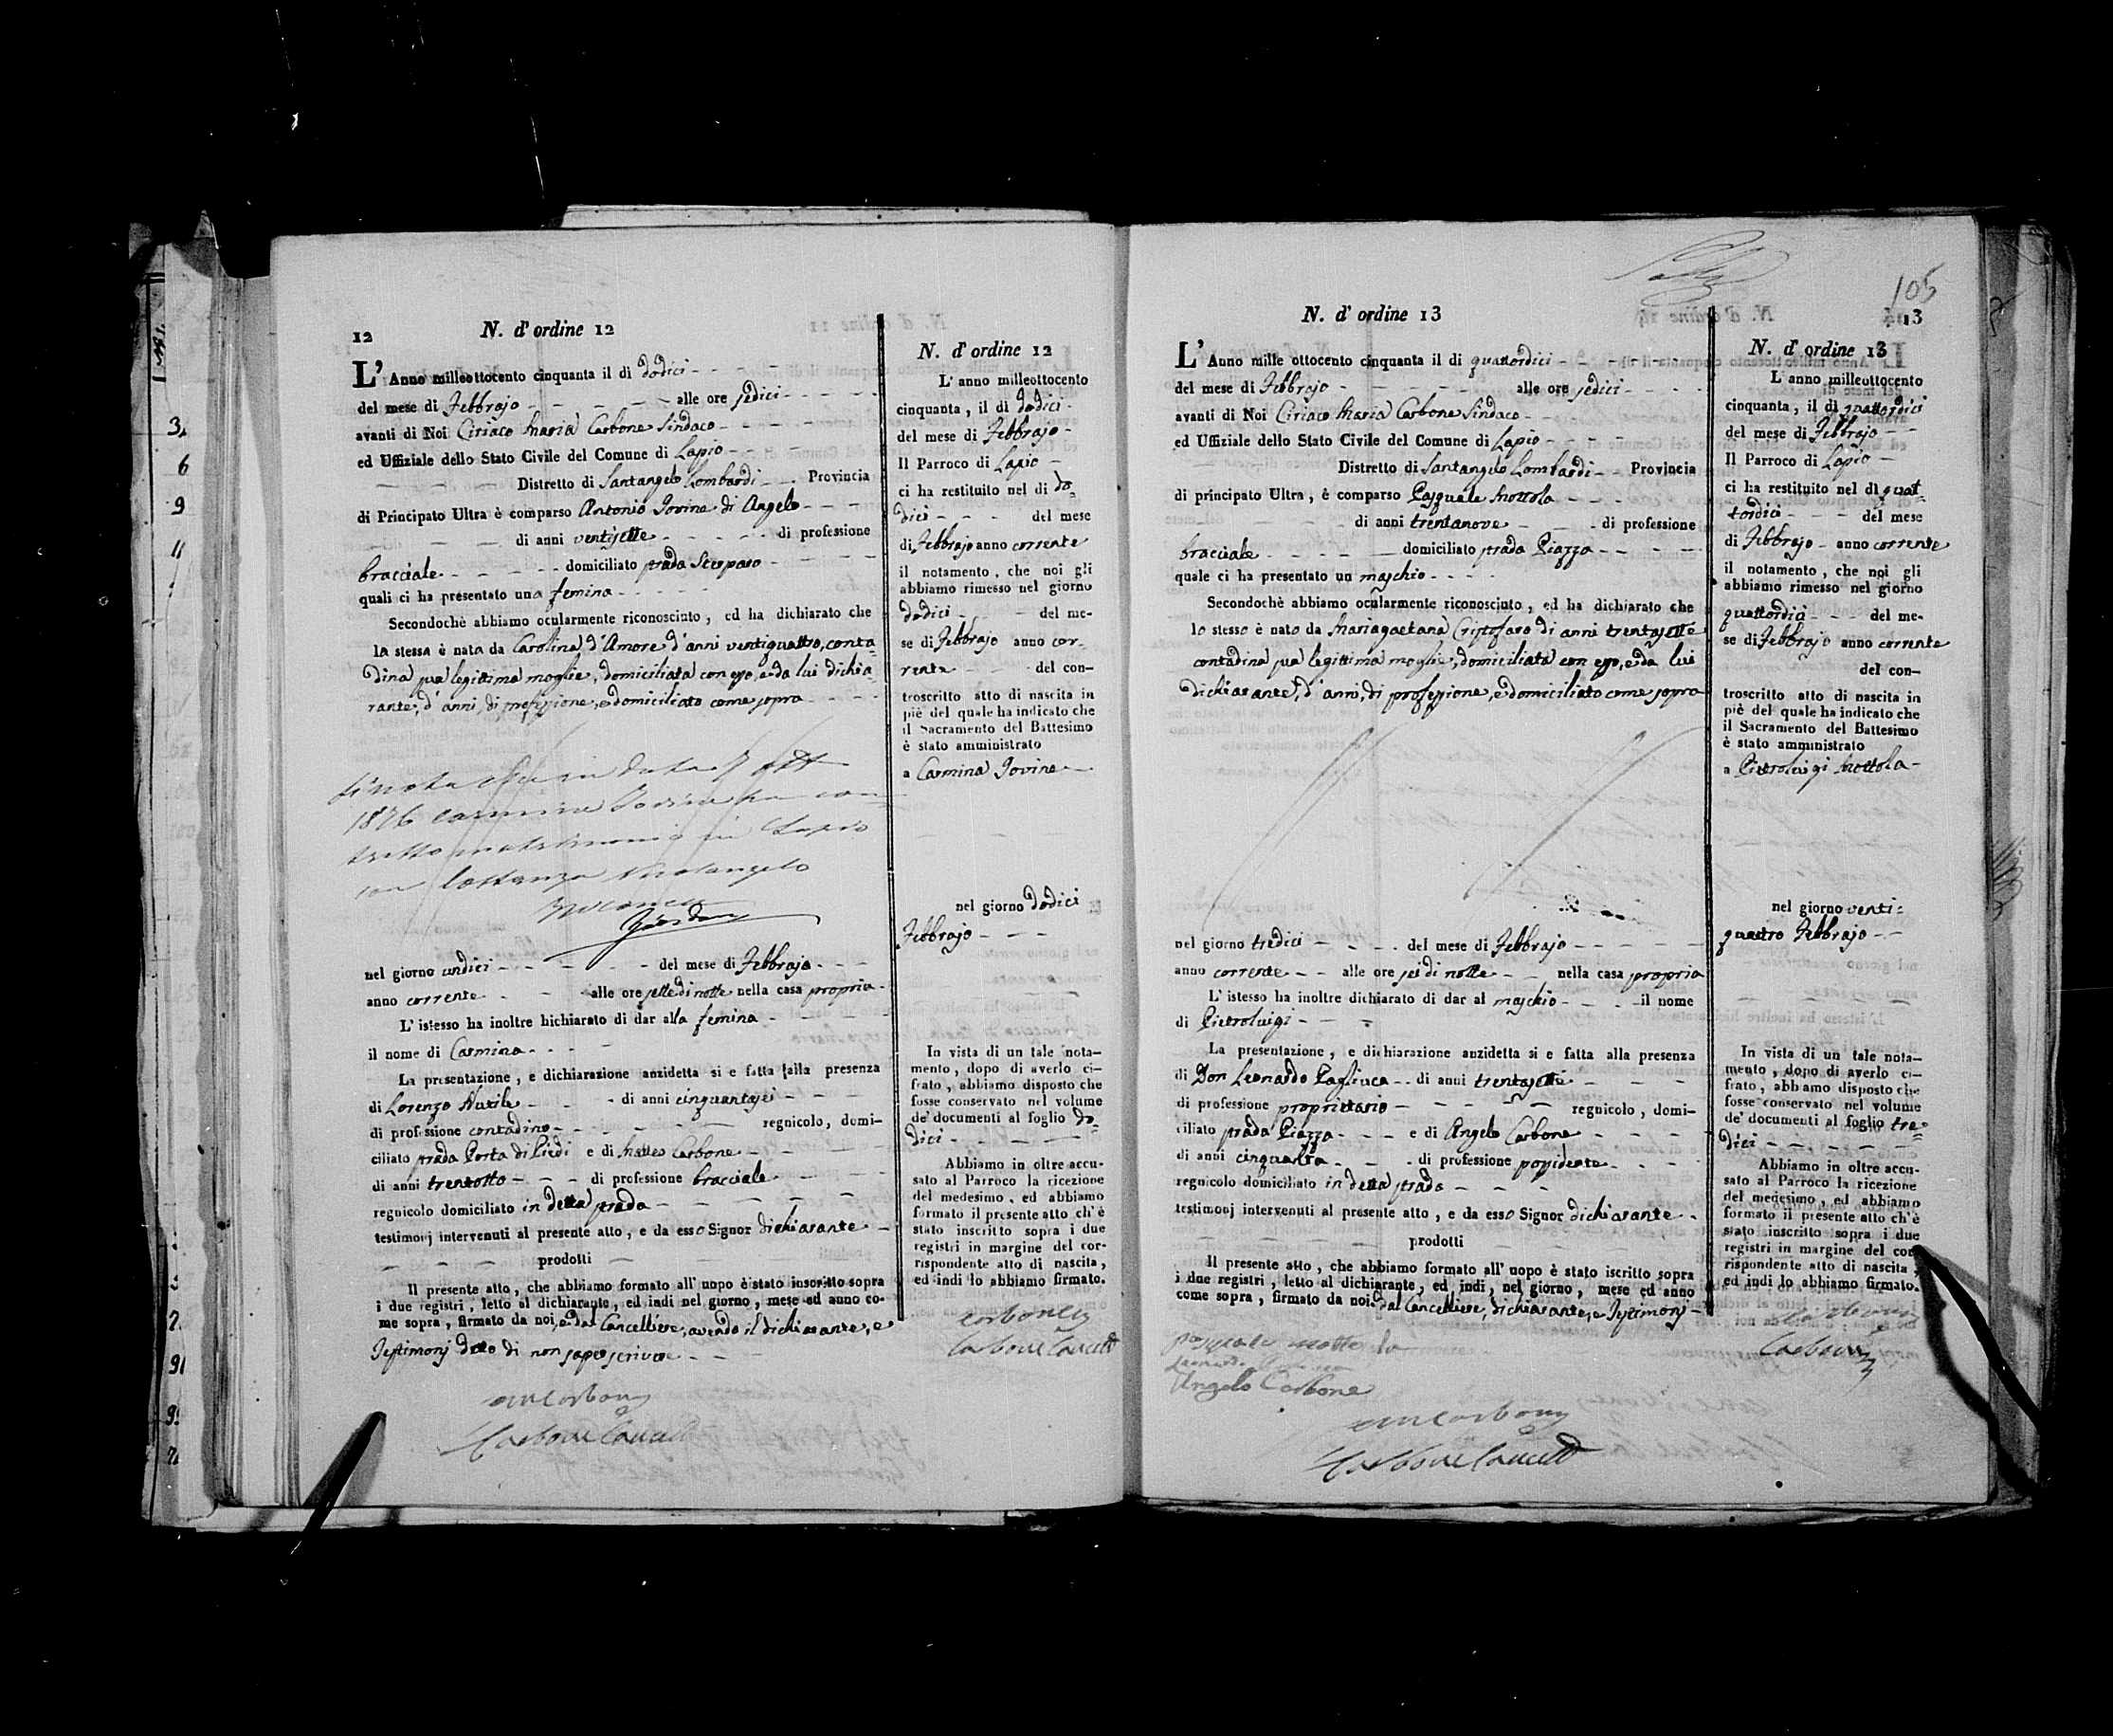 12
N. d' ordine 12
L' Anno milleottocento cinquanta il di dodici
del mese di Febbrajo alle ore sedici
avanti di Noi Ciriaco Maria Carbone Sindaco
ed Uffiziale dello Stato Civile del Comune di Lapio
Distretto di Santangelo Lombardi Provincia
di Principato Ultra è comparso Antonio Iovine di Angelo
di anni ventisette di professione
bracciale domiciliato strada
quali ci ha presentato una femina
Secondochè abbiamo ocularmente riconosciuto, ed ha dichiarato che
la stessa è nata da Carolina d'Amore d'anni ventiquattro, conta=
dina sua legittima moglie, domiciliata con esso, e da lui dichia=
rante, d'anni, di professione, e domiciliato come sopra
Si nota che in data 7
1876 Carmina Iovine ha con=
tratto matrimonio in Lapio
con Costanzo Nicolangelo
nel giorno undici del mese di Febbrajo
anno corrente alle ore sette di notte nella casa propria
L' istesso ha inoltre hichiarato di dar alla femina
il nome di Carmina
La presentazione, e dichiarazione anzidetta si e fatta alla presenza
di Lorenzo di anni cinquantasei
di professione contadino regnicolo, domi-
ciliato strada Porta di Piedi e di Matteo Carbone
di anni trentotto di professione bracciale
regnicolo domiciliato in detta strada
testimonj intervenuti al presente atto, e da esso Signor dichiarante
prodotti
Il presente atto, che abbiamo formato all' uopo è stato inscritto sopra
i due registri, letto al dichiarante, ed indi nel giorno, mese ed anno co-
me sopra, firmato da noi, e dal Cancelliere, avendo il dichiarante, e
Testimonj detto di non saper scrivere
Carbone
Carbone Cancell
N. d' ordine 12
L' anno milleottocento
cinquanta, il di dodici
del mese di Febbrajo
Il Parroco di Lapio
ci ha restituito nel di do=
dici del mese
di Febbrajo anno corrente
il notamento, che noi gli
abbiamo rimesso nel giorno
dodici del me-
se di Febbrajo anno cor=
rente del con-
troscritto atto di nascita in
piè del quale ha indicato che
il Sacramento del Battesimo
è stato amministrato
a Carmina Iovine
nel giorno dodici
Febbrajo
In vista di un tale nota-
mento, dopo di averlo ci-
frato, abbiamo disposto che
fosse conservato nel volume
de' documenti al foglio do=
dici
Abbiamo in oltre accu-
sato al Parroco la ricezione
del medesimo, ed abbiamo
formato il presente atto ch'è
stato inscritto sopra i due
registri in margine del cor-
rispondente atto di nascita,
ed indi lo abbiamo firmato.
Carbone
Carbone Cancell
105
13
N. d' ordine 13
L' Anno mille ottocento cinquanta il di quattordici
del mese di Febbrajo alle ore sedici
avanti di Noi Ciriaco Maria Carbone Sindaco
ed Uffiziale dello Stato Civile del Comune di Lapio
Distretto di Santangelo Lombardi Provincia
di principato Ultra, è comparso Pasquale Mottola
di anni trentanove di professione
bracciale domiciliato strada Piazza
quale ci ha presentato un maschio
Secondochè abbiamo ocularmente riconosciuto, ed ha dichiarato che
lo stesso è nato da Mariagaetana Cristofaro di anni trentasette
contadina sua legittima moglie, domiciliata con esso, e da lui
dichiarante, d'anni, di professione, e domiciliato come sopra
nel giorno tredici del mese di Febbrajo
anno corrente alle ore sei di notte nella casa propria
L' istesso ha inoltre dichiarato di dar al maschio il nome
di Pietroluigi
La presentazione, e dichiarazione anzidetta si e fatta alla presenza
di Don Leonardo Pagliuca di anni trentasette
di professione proprietario regnicolo, domi-
ciliato strada Piazza e di Angelo Carbone
di anni cinquanta di professione possidente
regnicolo domiciliato in detta strada
testimonj intervenuti al presente atto, e da esso Signor dichiarante
prodotti
Il presente atto, che abbiamo formato all' uopo è stato iscritto sopra
i due registri, letto al dichiarante, ed indi, nel giorno, mese ed anno
come sopra, firmato da noi, dal Cancelliere, dichiarante, e Testimonj
Pasquale Mottola
Angelo Carbone
Carbone
Carbone Cancell
N. d' ordine 13
L' anno milleottocento
cinquanta, il di quattordici
del mese di Febbrajo
Il Parroco di Lapio
ci ha restituito nel di quat=
tordici del mese
di Febbrajo anno corrente
il notamento, che noi gli
abbiamo rimesso nel giorno
quattordici del me-
se di Febbrajo anno corrente
del con-
troscritto atto di nascita in
piè del quale ha indicato che
il Sacramento del Battesimo
è stato amministrato
a Pietroluigi Mottola
nel giorno venti=
quattro Febbrajo
In vista di un tale nota-
mento, dopo di averlo ci-
frato, abbiamo disposto che
fosse conservato nel volume
de' documenti al foglio tre=
dici
Abbiamo in oltre accu-
sato al Parroco la ricezione
del medesimo, ed abbiamo
formato il presente atto ch'è
stato inscritto sopra i due
registri in margine del cor-
rispondente atto di nascita,
ed indi lo abbiamo firmato.
Carbone